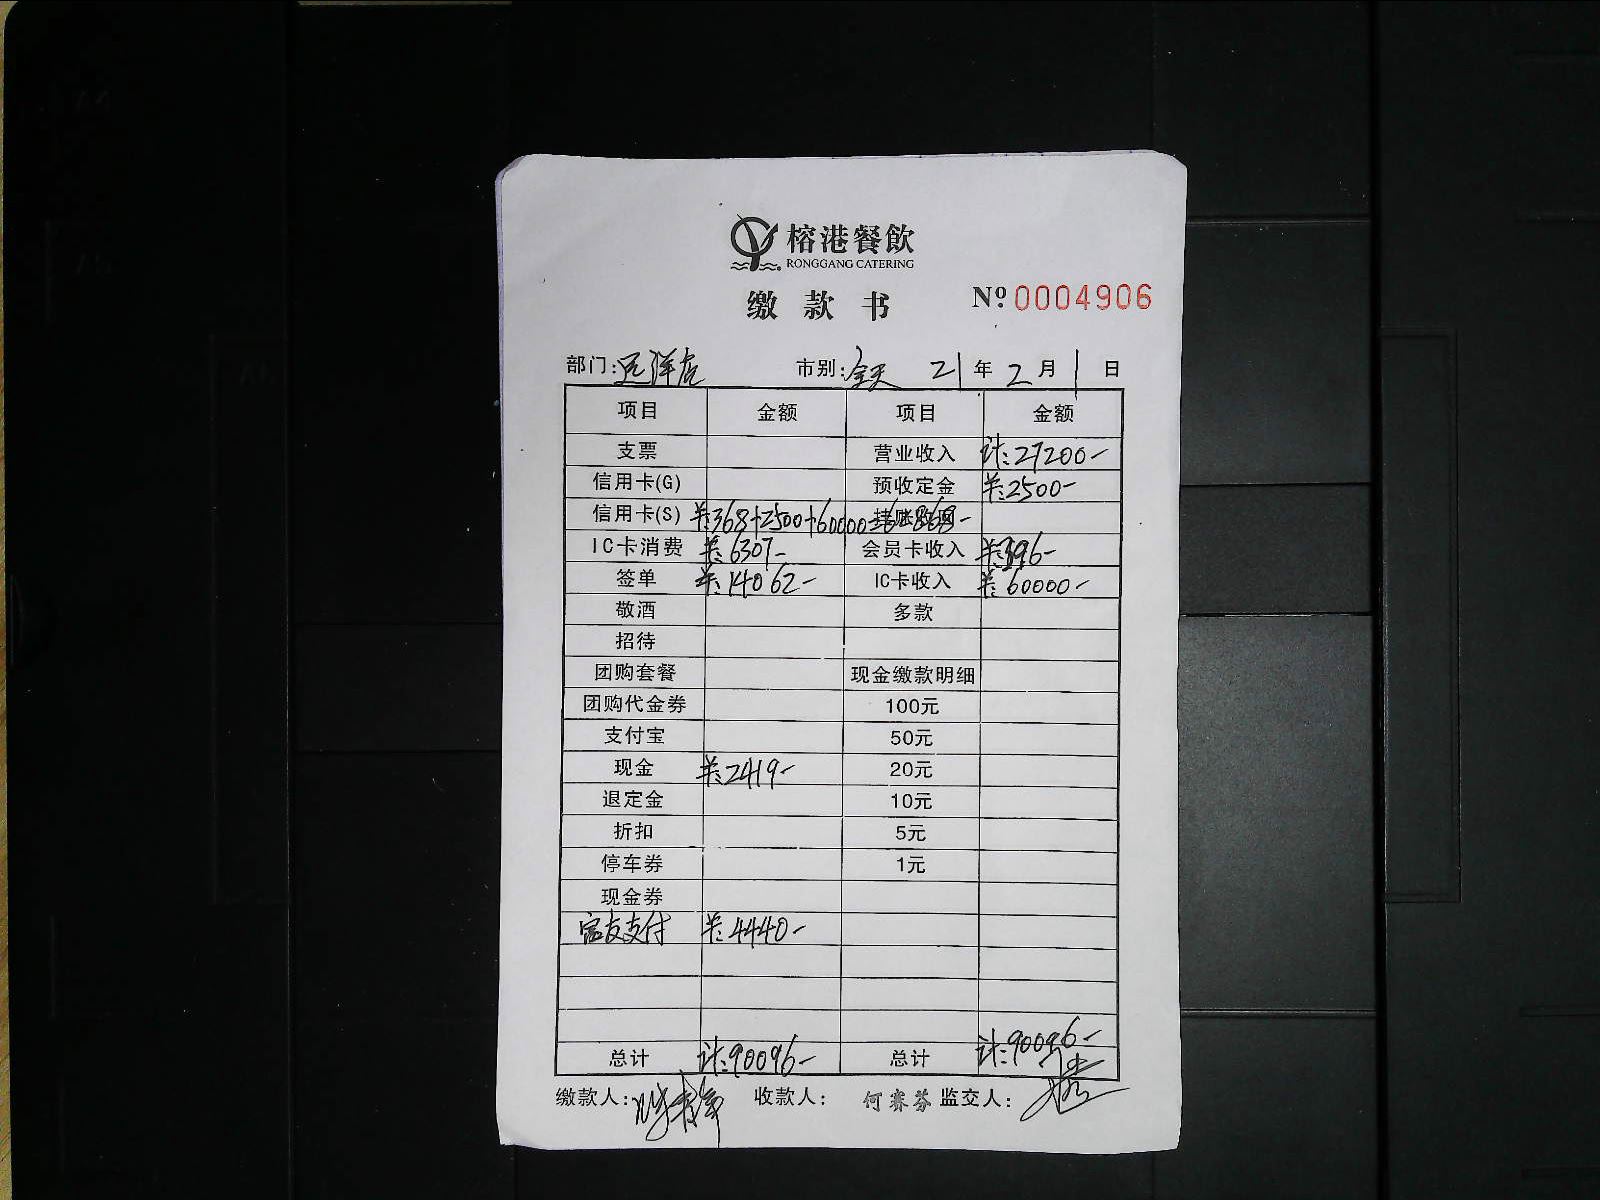 榕港餐飲
RONGGANG CATERING
缴款书 Nº 0004906
部门:远洋店 市别:全天 21年2月1日
项目 金额 项目 金额
支票 营业收入 计:27200-
信用卡(G) 预收定金 羊:2500-
信用卡(S) 羊:368+2500+60000=62868- 挂账收回
IC卡消费 羊:6307- 会员卡收入 羊:396-
签单 羊:14062- IC卡收入 羊:60000-
敬酒 多款
招待
团购套餐 现金缴款明细
团购代金券 100元
支付宝 50元
现金 羊:2419- 20元
退定金 10元
折扣 5元
停车券 1元
现金券
富友支付 羊:4440-
总计 计:90096- 总计 计:90096-
缴款人: 收款人: 何赛芬 监交人: